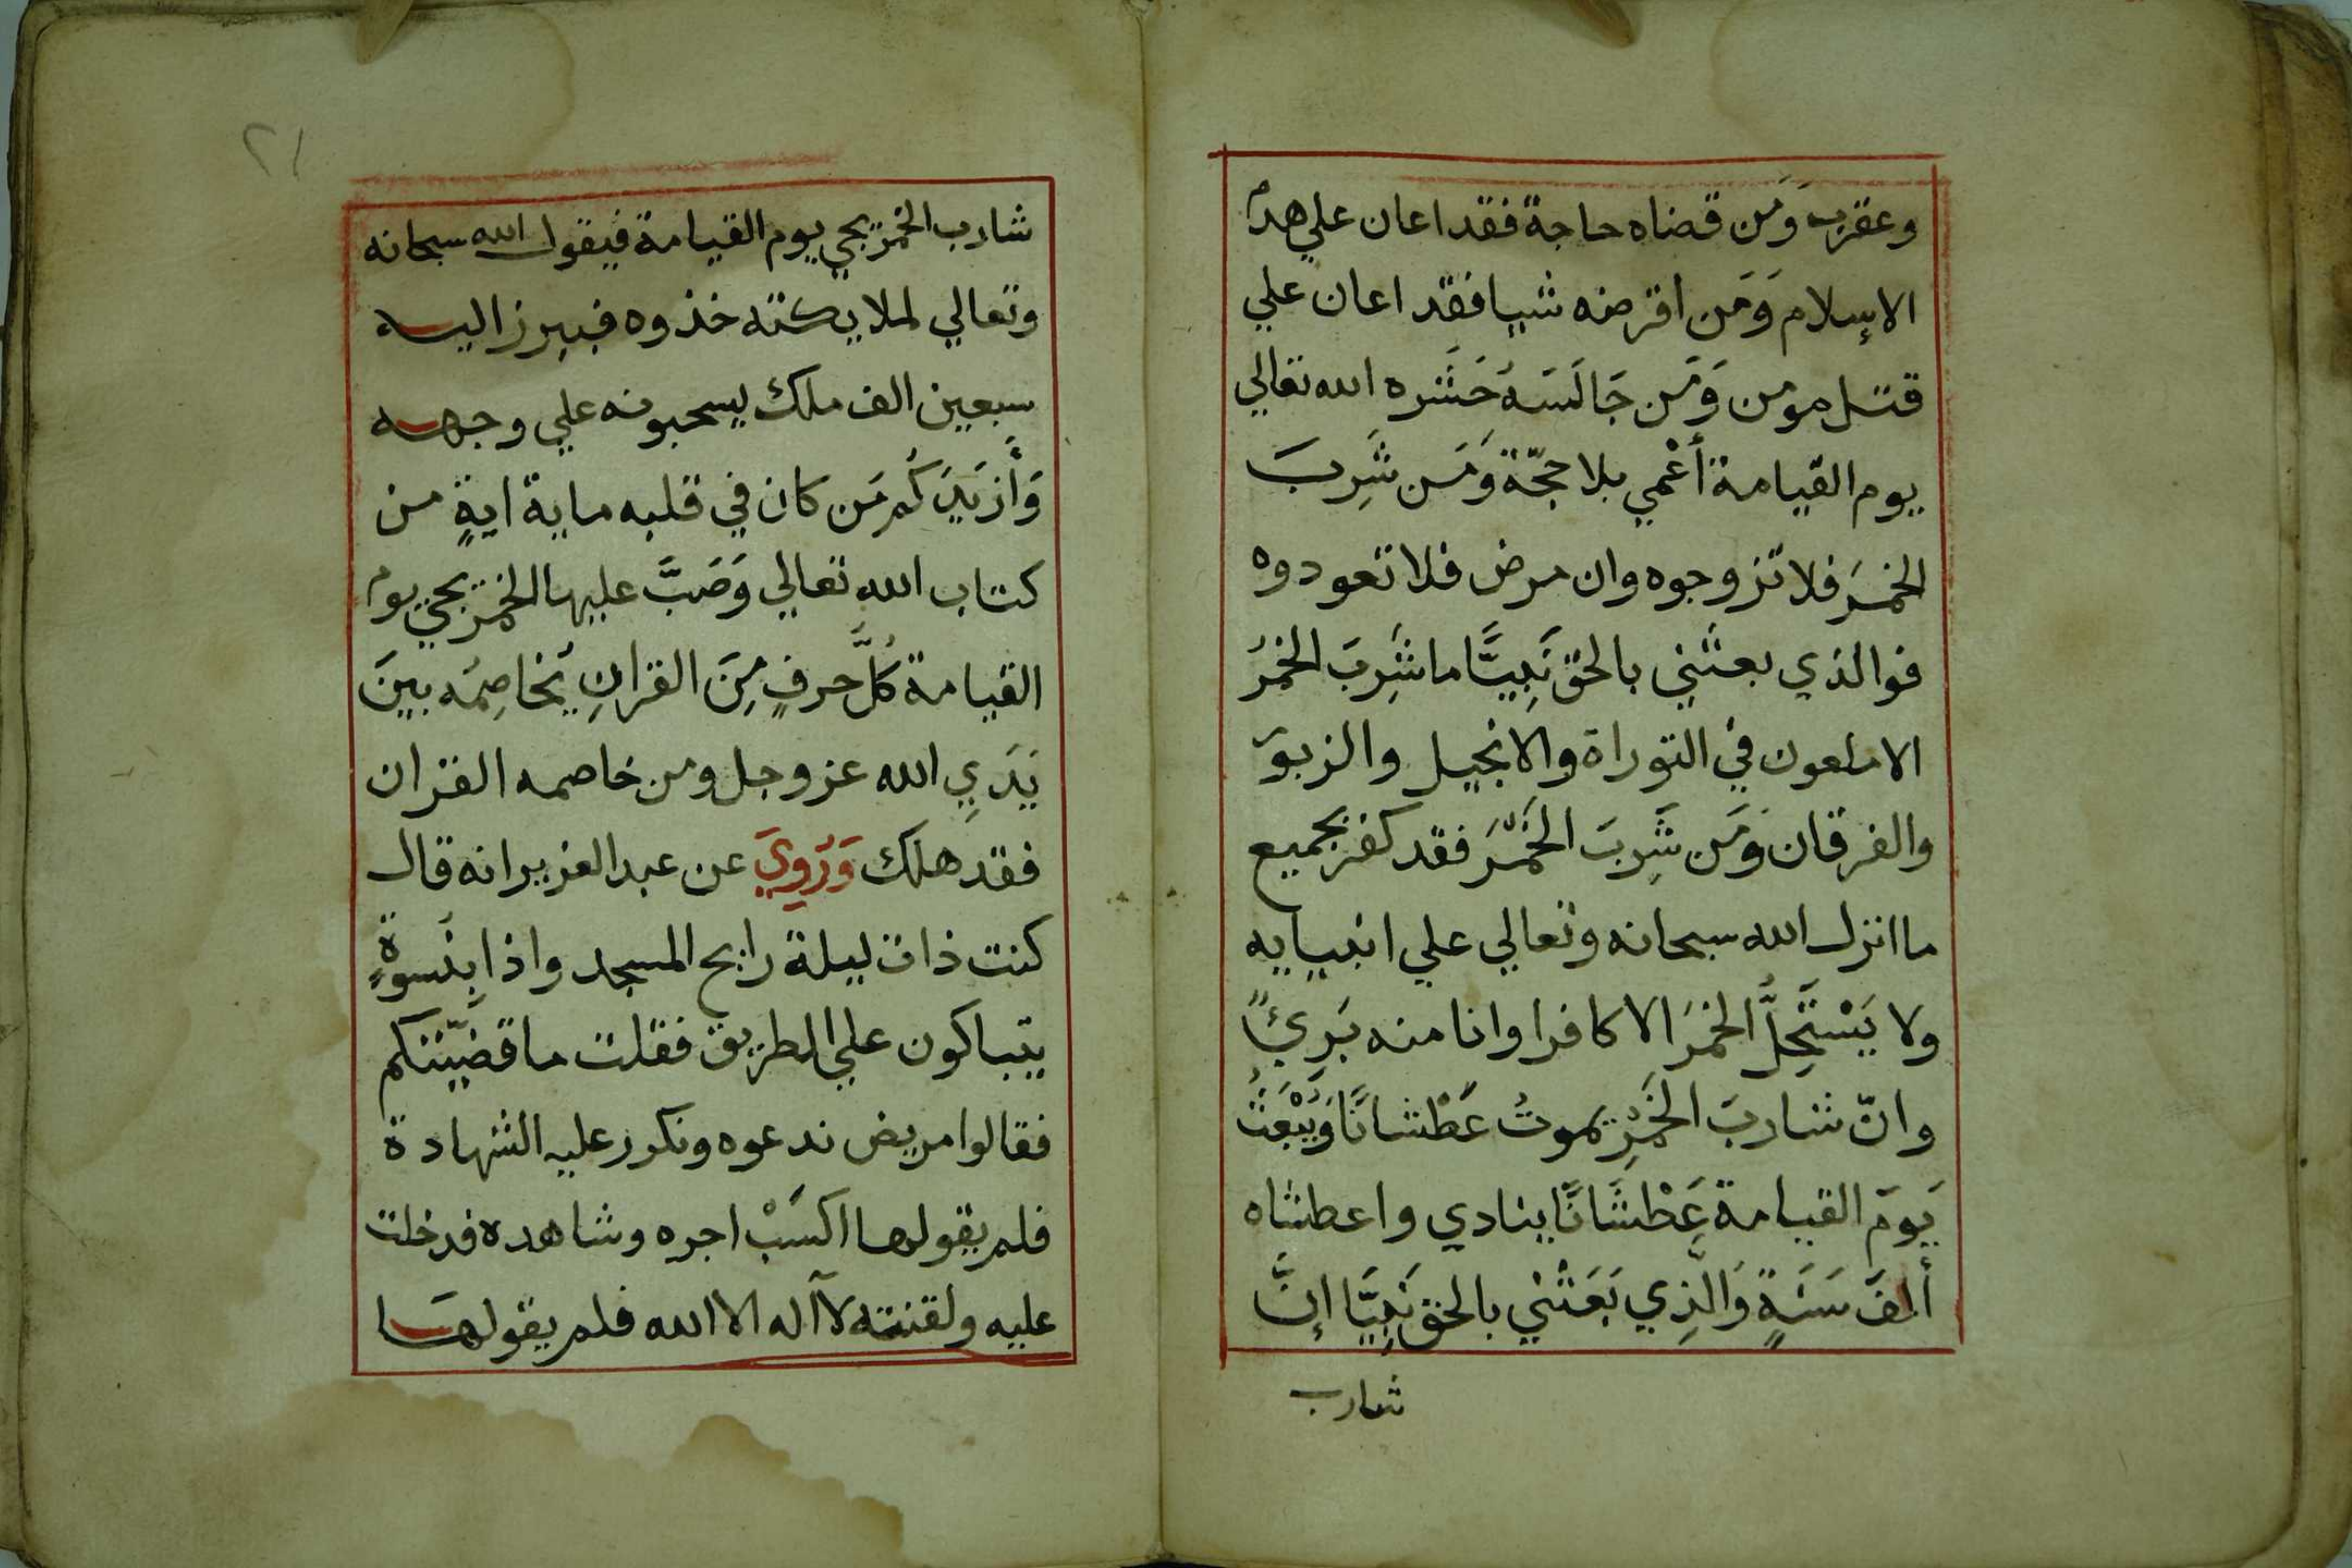 وعقرب وَمَن قضاه حاجة فقد اعان علي هدم
الاسلام وَمَن اقرضه شيا فقد اعان علي
قتل مومن وَمَن جَالَسَهُ حَشَره الله تعالي
يوم القيامة أَعْمي بلا حجّة وَمَن شَرِبَ
الخمَر فلا تزوجوه وان مرض فلا تعودوه
فوالذي بعثني بالحق نَبِيًّا ما شَرِبَ الخمرُ
الا ملعون في التوراة والانجيل والزبور
والفرقان وَمَن شَرِبَ الخَمْرَ فقد كفر بجميع
ما انزل الله سبحانه وتعالي علي انبيايه
ولا يَسْتَحِلُّ الخمرَ الا كافرا وانا منه بَرِئًي
وانّ شاربَ الخَمْرِ يموتُ عَطْشانًا وَيُبْعَثُ
يَومَ القيامة عَطْشَانًا ينادي واعطشاه
أَلفَ سَنَةٍ وَالَّذِي بَعَثَنْي بالحق نَبِيَّا إنَّ
شارب
٢١
شارب الخمر يجي يوم القيامة فيقول الله سبحانه
وتعالي لملايكته خذوه فيبرز اليه
سبعين الف ملك يسحبونه علي وجهه
وَأَزيَدَكُم مَن كان في قلبه ماية ايةٍ من
كتاب الله تعالي وَصَبَّ عليها الخمر يجي يوم
القيامة كُلَّ حرفٍ مِنَ القرانِ يُخاصِمُه بينَ
يَدَيِ الله عز وجل ومن خاصمه القران
فقد هلك وَرُوِيَ عن عبد العزيز انه قال
كنت ذات ليلة رايح المسجد واذا بِنُسوةٍ
يتباكون علي الطريق فقلت ما قضيّتكم
فقالوا مريض ندعوه ونكرر عليه الشهادة
فلم يقولها اكسَبْ اجره وشاهده فدخلت
عليه ولقنته لا آله الا الله فلم يقولها